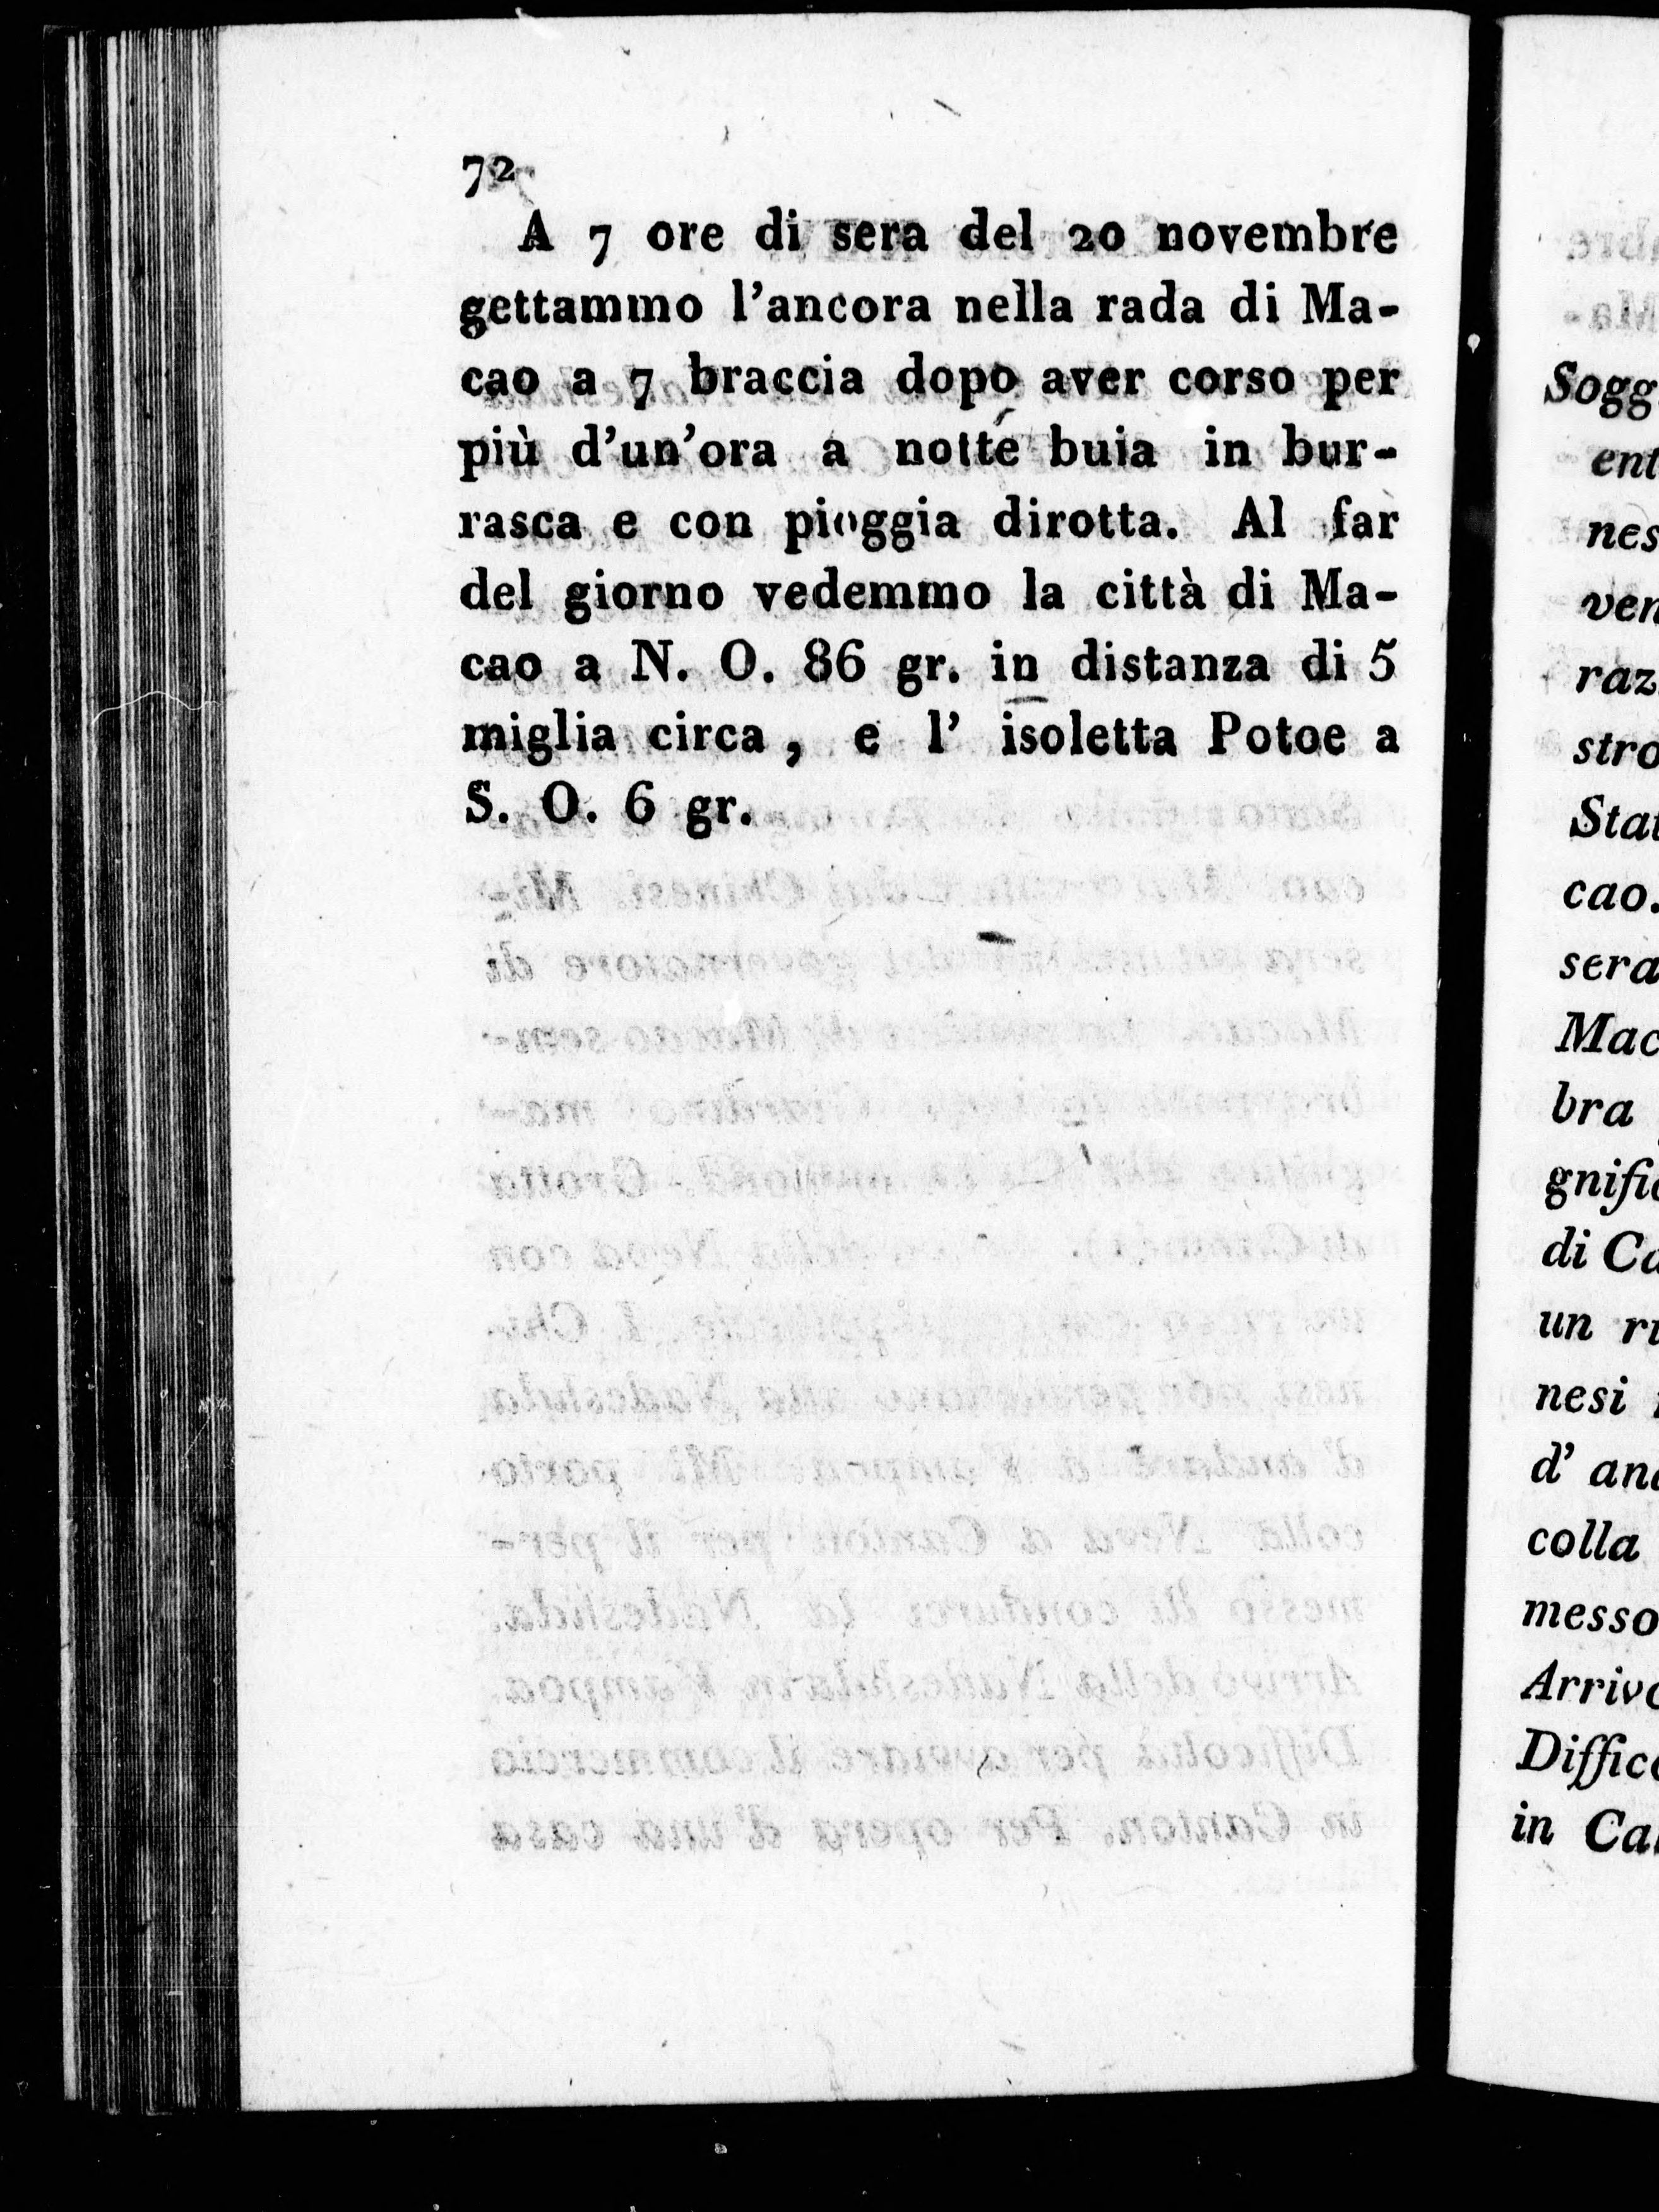 72
A 7 ore di sera del 20 novembre
gettammo l'ancora nella rada di Ma-
cao a 7 braccia dopo aver corso per
più d'un'ora a notte buia in bur-
rasca e con pioggia dirotta. Al far
del giorno vedemmo la città di Ma-
cao a N. O. 86 gr. in distanza di 5
miglia circa, e l' isoletta Potoe a
S. O. 6 gr.
Sogg
ent
nes
ven
raz
stro
Stat
cao.
sera
Mac
bra
gnific
di Ca
un ri
nesi
d' and
colla
messo
Arrivo
Diffico
in Can